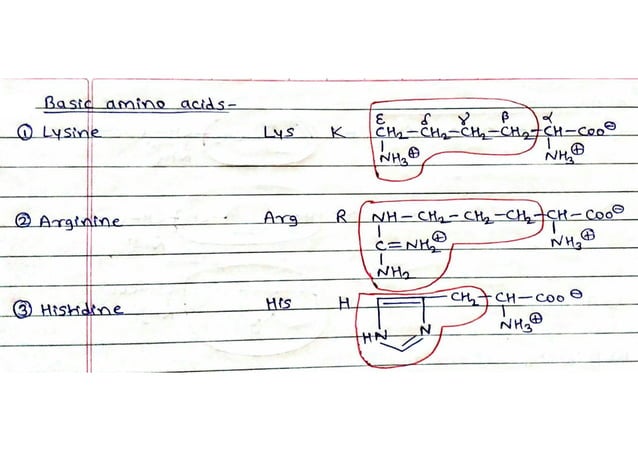 Basic amino acids-
ε δ γ β α
① Lysine Lys K CH₂-CH₂-CH₂-CH₂-CH-COO⊖
NH₃⊕ NH₃⊕
② Arginine Arg R NH-CH₂-CH₂-CH₂-CH-COO⊖
C=NH₂⊕ NH₃⊕
NH₂
③ Histidine His H CH₂-CH-COO⊖
HN N NH₃⊕